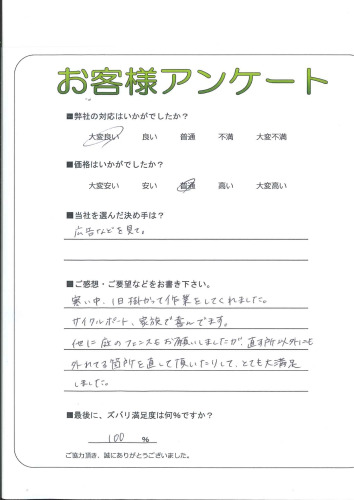 お客様アンケート
■弊社の対応はいかがでしたか?
大変良い 良い 普通 不満 大変不満
■価格はいかがでしたか?
大変安い 安い 普通 高い 大変高い
■当社を選んだ決め手は?
広告などを見て。
■ご感想・ご要望などをお書き下さい。
寒い中、1日掛かって作業をしてくれました。
サイクルポート、家族で喜んでます。
他に庭のフェンスもお願いしましたが、直す所以外にも
外れてる箇所を直して頂いたりして、とても大満足
しました。
■最後に、ズバリ満足度は何%ですか?
100 %
ご協力頂き、誠にありがとうございました。